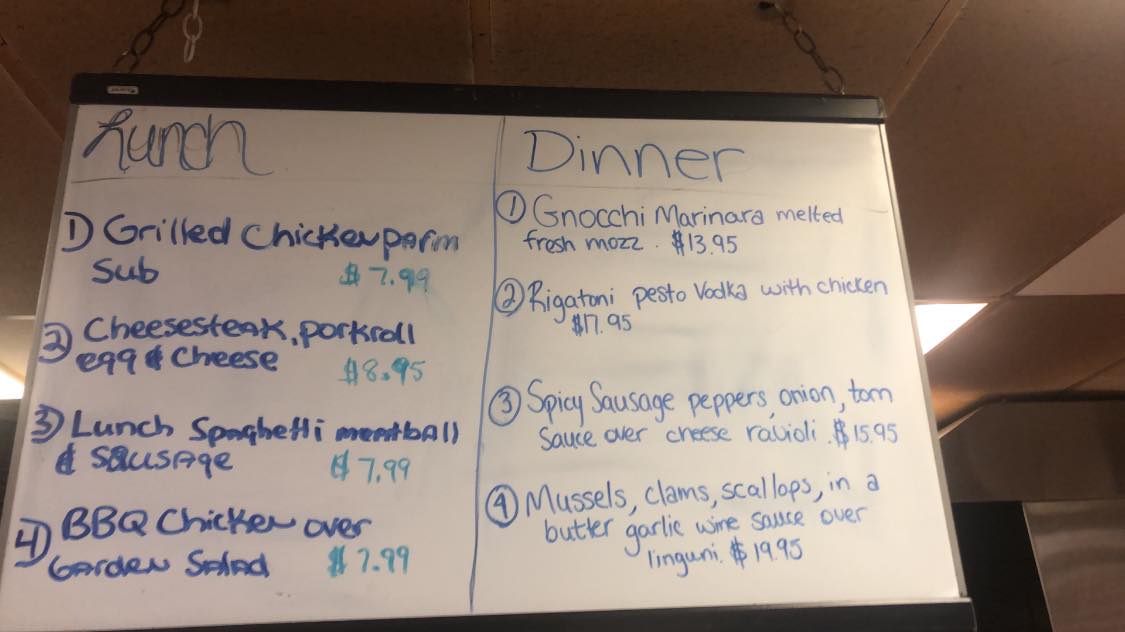 Lunch
1) Grilled Chicken parm
Sub $7.99
2) Cheesesteak, porkroll
egg & Cheese $8.95
3) Lunch Spaghetti meatball
& Sausage $7.99
4) BBQ Chicken over
Garden Salad $7.99
Dinner
① Gnocchi Marinara melted
fresh mozz. $13.95
② Rigatoni pesto Vodka with chicken
$17.95
③ Spicy Sausage peppers, onion, tom
Sauce over cheese ravioli. $15.95
④ Mussels, clams, scallops, in a
butter garlic wine sauce over
linguni. $19.95